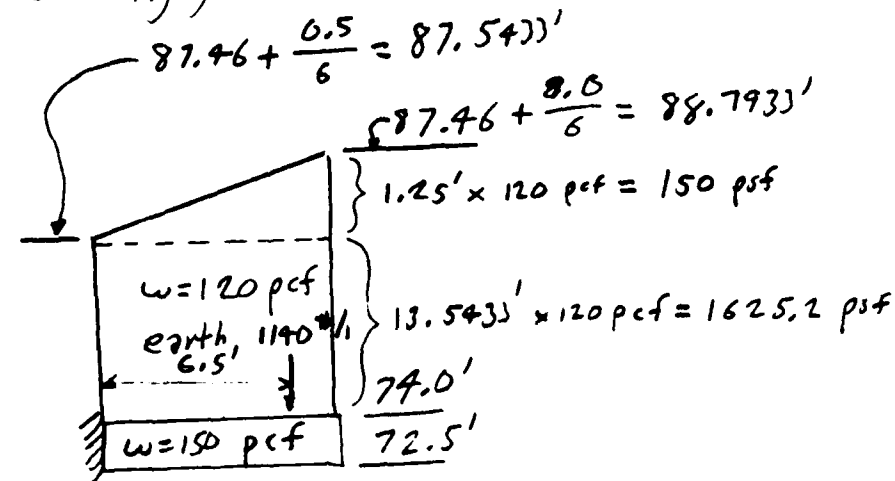 87.46 + 0.5/6 = 87.5433'
87.46 + 8.0/6 = 88.7933'
1.25' x 120 pcf = 150 psf
w=120 pcf
earth, 1140 #/1
6.5'
13.5433' x 120 pcf = 1625.2 psf
74.0'
72.5'
w=150 pcf